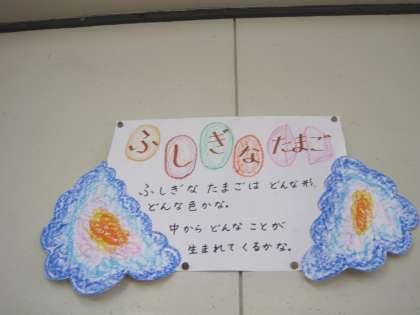 ふしぎなたまご
ふしぎな たまごは どんな形、
どんな色かな。
中から どんな ことが
生まれてくるかな。